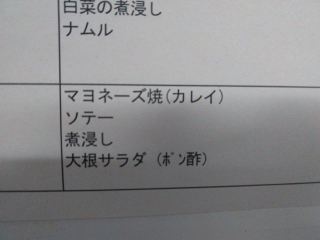 白菜の煮浸し
ナムル
マヨネーズ焼(カレイ)
ソテー
煮浸し
大根サラダ (ﾎﾟﾝ酢)